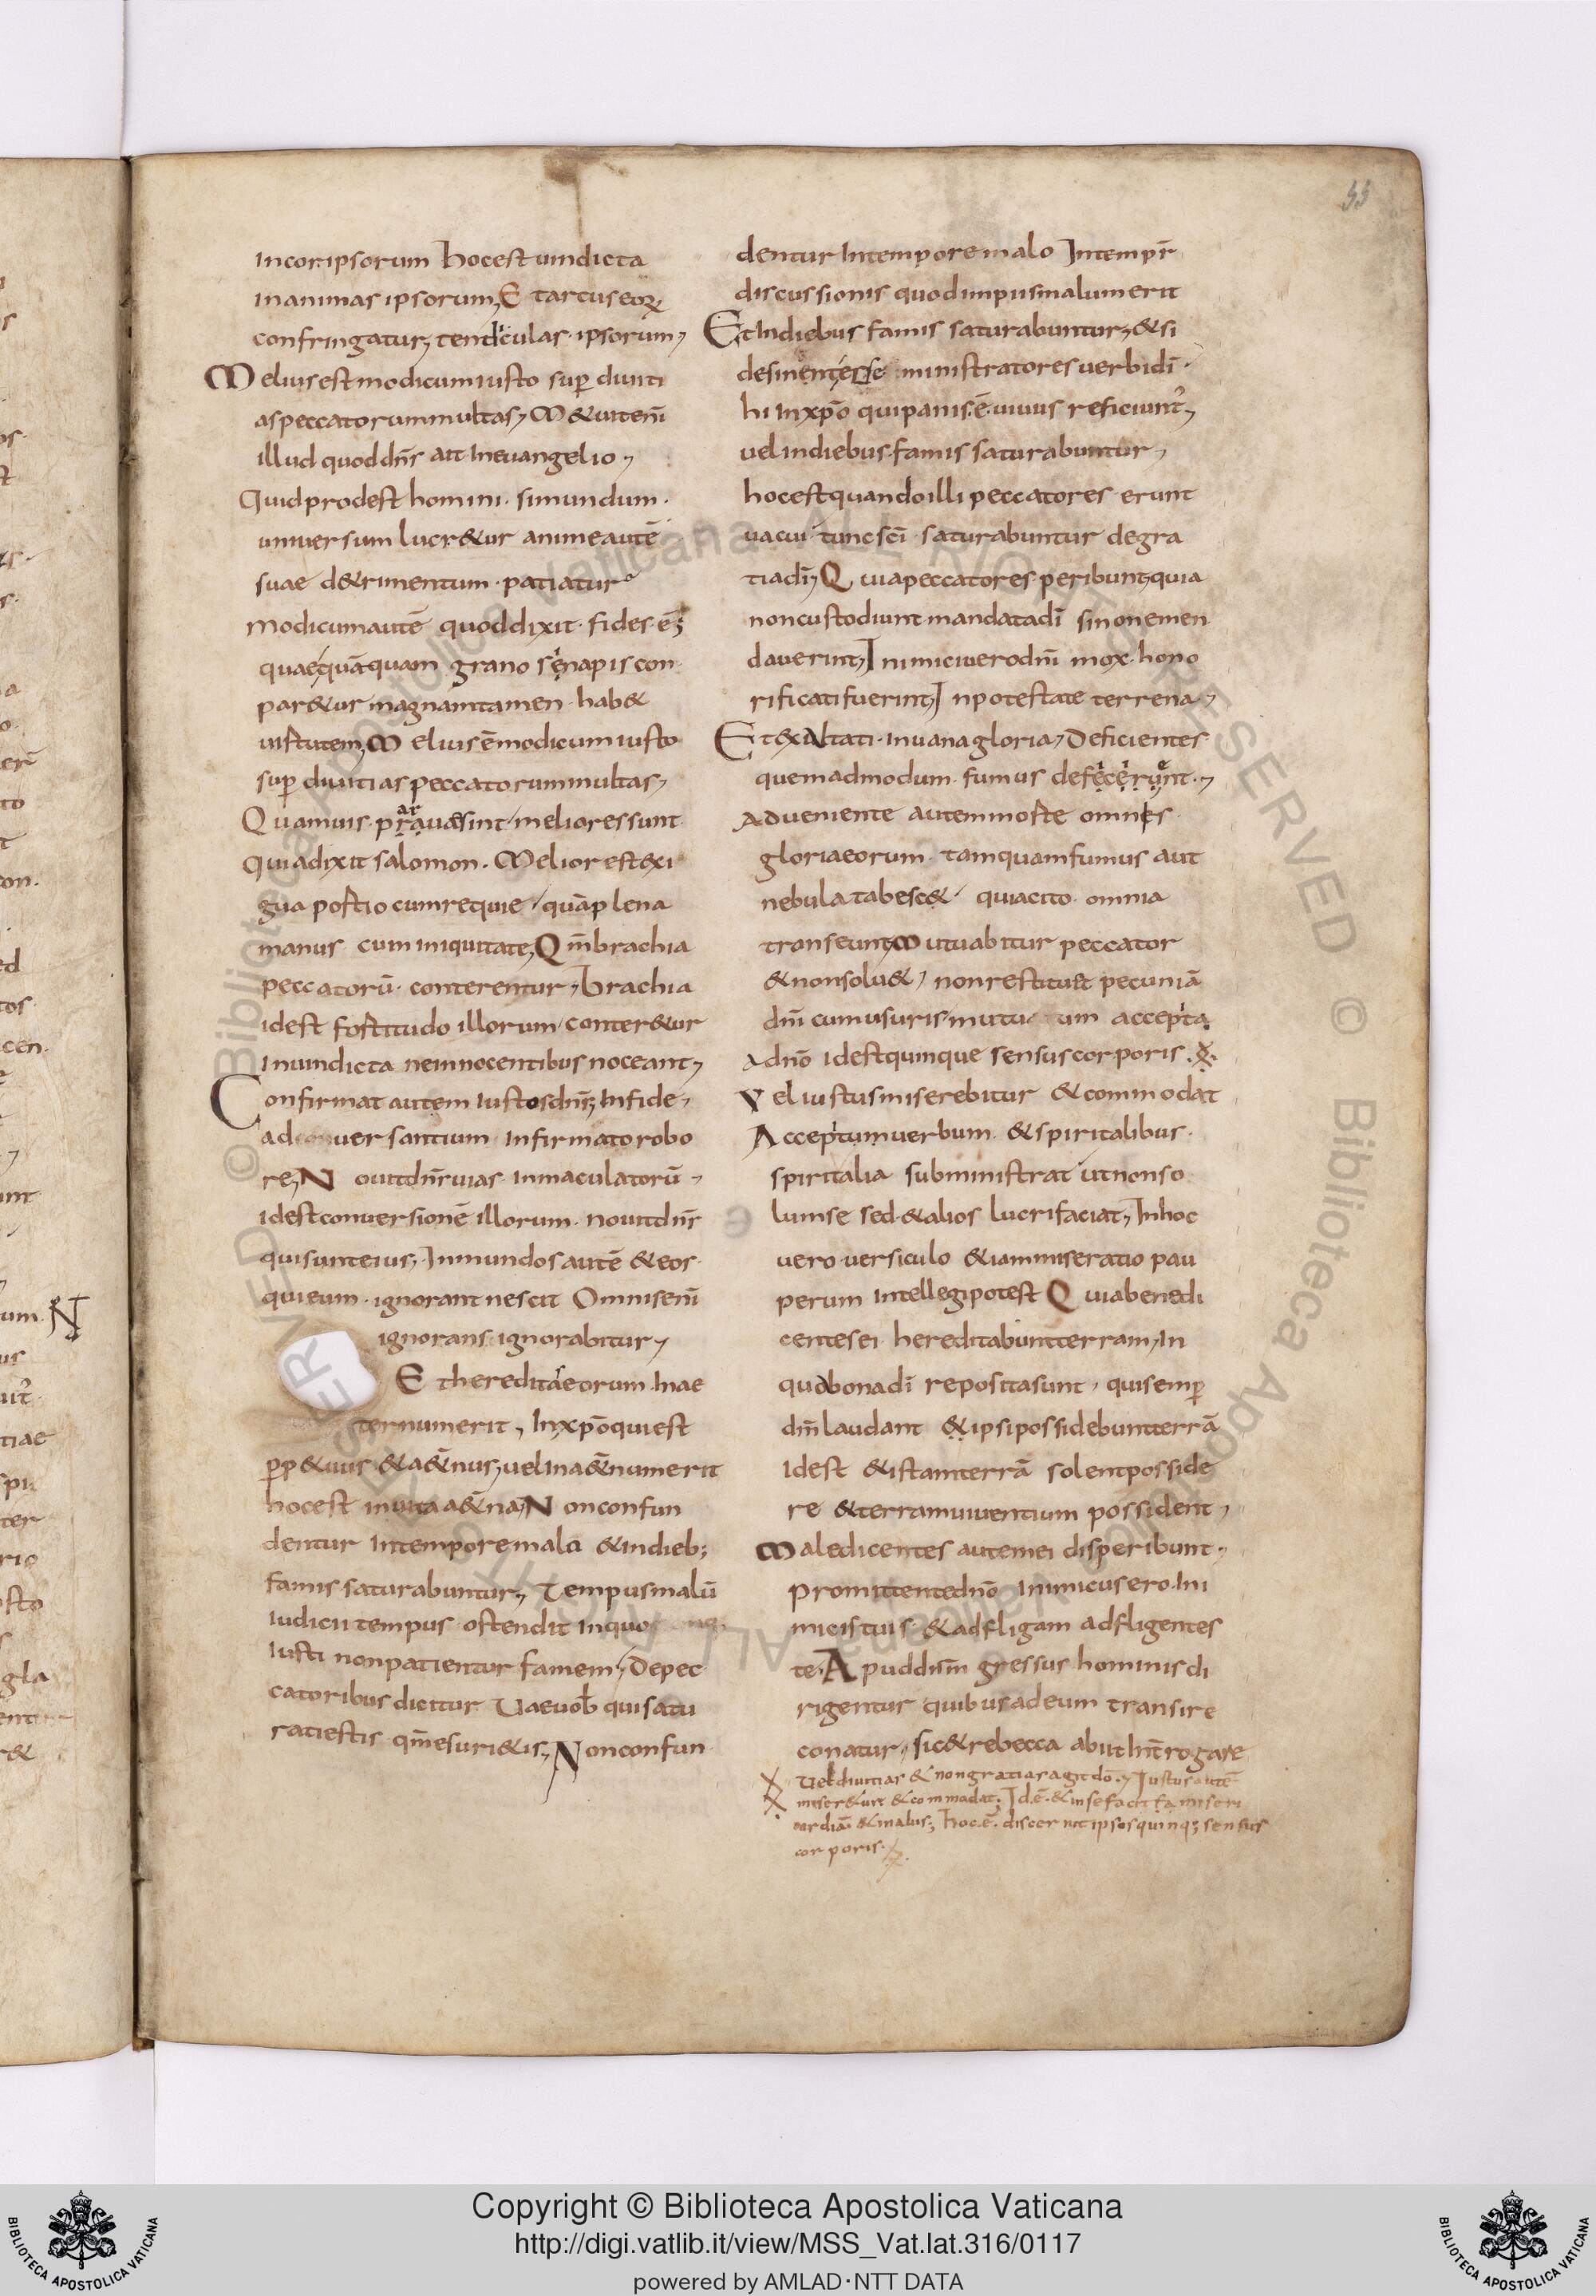 55
incor ipsorum hocest uindicta
inanimas ipsorum; Et arcus eorum
confringatur; tendiculas ipsorum;
Melius est modicum iusto sup̄ diuiti
as peccatorum multas; M&uitem̄
illud quod dn̄s ait In euangelio;
Quid prodest homini · si mundum ·
uniuersum lucr&ur animae autē
suae d&rimentum · patiatur
modicum autē quod dixit · fides · ē;
quae quāquam grano senapis con
par&ur magnam tamen · hab&
uirtutem; Melius ē modicum iusto
sup̄ diuitias peccatorum multas;
Quamuis · praua sint meliores sunt
Quia dixit salomon · Melior est exi
gua portio cum requie / quā plena
manus cum iniquitate; Qm̄ brachia
peccatorū · conterentur; brachia
idest fortitudo illorum conter&ur
In uindicta ne innocentibus noceant;
Confirmat autem Iustos dn̄s; In fide
aduersantium Infirmato robo
re; Nouit dn̄s uias · Inmaculatorū
idest conuersionē illorum · nouit dn̄s
qui sunt eius; Inmundos autē & eos
qui eum · ignorant nescit Omnis enī
ignorans ignorabitur;
Et hereditas eorum · In ae
ternum erit, In xp̄o qui est
pp&uus & a&nus; uel In a&num erit
hocest in uita a&na; Non confun
dentur In tempore malo & indieb;
famis saturabuntur; Tempus malū
Iudicii tempus ostendit In quo
Iusti non patientur famem; De pec
catoribus dicitur Uae uob̄ qui satu
rati estis · qm̄ esuri&is; Non confun
dentur In tempore malo In tempr̄
discussionis quod impiis malum erit
Et In diebus famis saturabuntur; & si
desinent esse ministratores uerbi dī ·
hi In xp̄o qui panis · ē · uiuus reficiunt̄;
uel in diebus famis saturabuntur,
hoc est quando illi peccatores erunt
uacui tunc scī saturabuntur de gra
tia dī; Quia peccatores peribunt; quia
non custodiunt mandata dī si non emen
dauerint; Inimici uero dnī mox · hono
rificati fuerint; In potestate terrena;
Et exaltati · In uana gloria; Deficientes
quemadmodum · fumus defecerunt ·;
Adueniente autem morte omnis
gloria eorum · tamquam fumus aut
nebula tabesc& / quia cito omnia
transeunt; Mutuabitur peccator
& non solu& / non restituet pecuniā
dnī cum usuris mutuatum accepta
A dn̄o idest quinque sensus corporis ·
Vel iustus miserebitur & commodat
Acceptum uerbum & spiritalibus ·
spiritalia subministrat ut non so
lum se sed & alios lucrifaciat; In hoc
uero uersiculo &iam miseratio pau
perum Intellegi potest Quia benedi
centes ei hereditabunt terram, In
quo bona dī reposita sunt, qui semp̄
dn̄m laudant & ipsi possidebunt terrā
Idest & istam terrā solent posside
re & terram uiuentium possident,
Maledicentes autem ei disperibunt;
Promittente dn̄o Inimicus ero · Ini
micis tuis & adfligam adfligentes
te · Apud dn̄m gressus hominis di
rigentur quibus ad eum transire
conatur, sic & rebecca abiit Int̄rogare
Uel diuitias & non gratias agit dō; Iustus autē
miser&ur & commodat; Id · ē · & in se facit
& malus; hoc · ē · discernit ipsos quinq; sensus
corporis ·
Copyright © Biblioteca Apostolica Vaticana
http://digi.vatlib.it/view/MSS_Vat.lat.316/0117
powered by AMLAD·NTT DATA
BIBLIOTECA APOSTOLICA VATICANA
BIBLIOTECA APOSTOLICA VATICANA